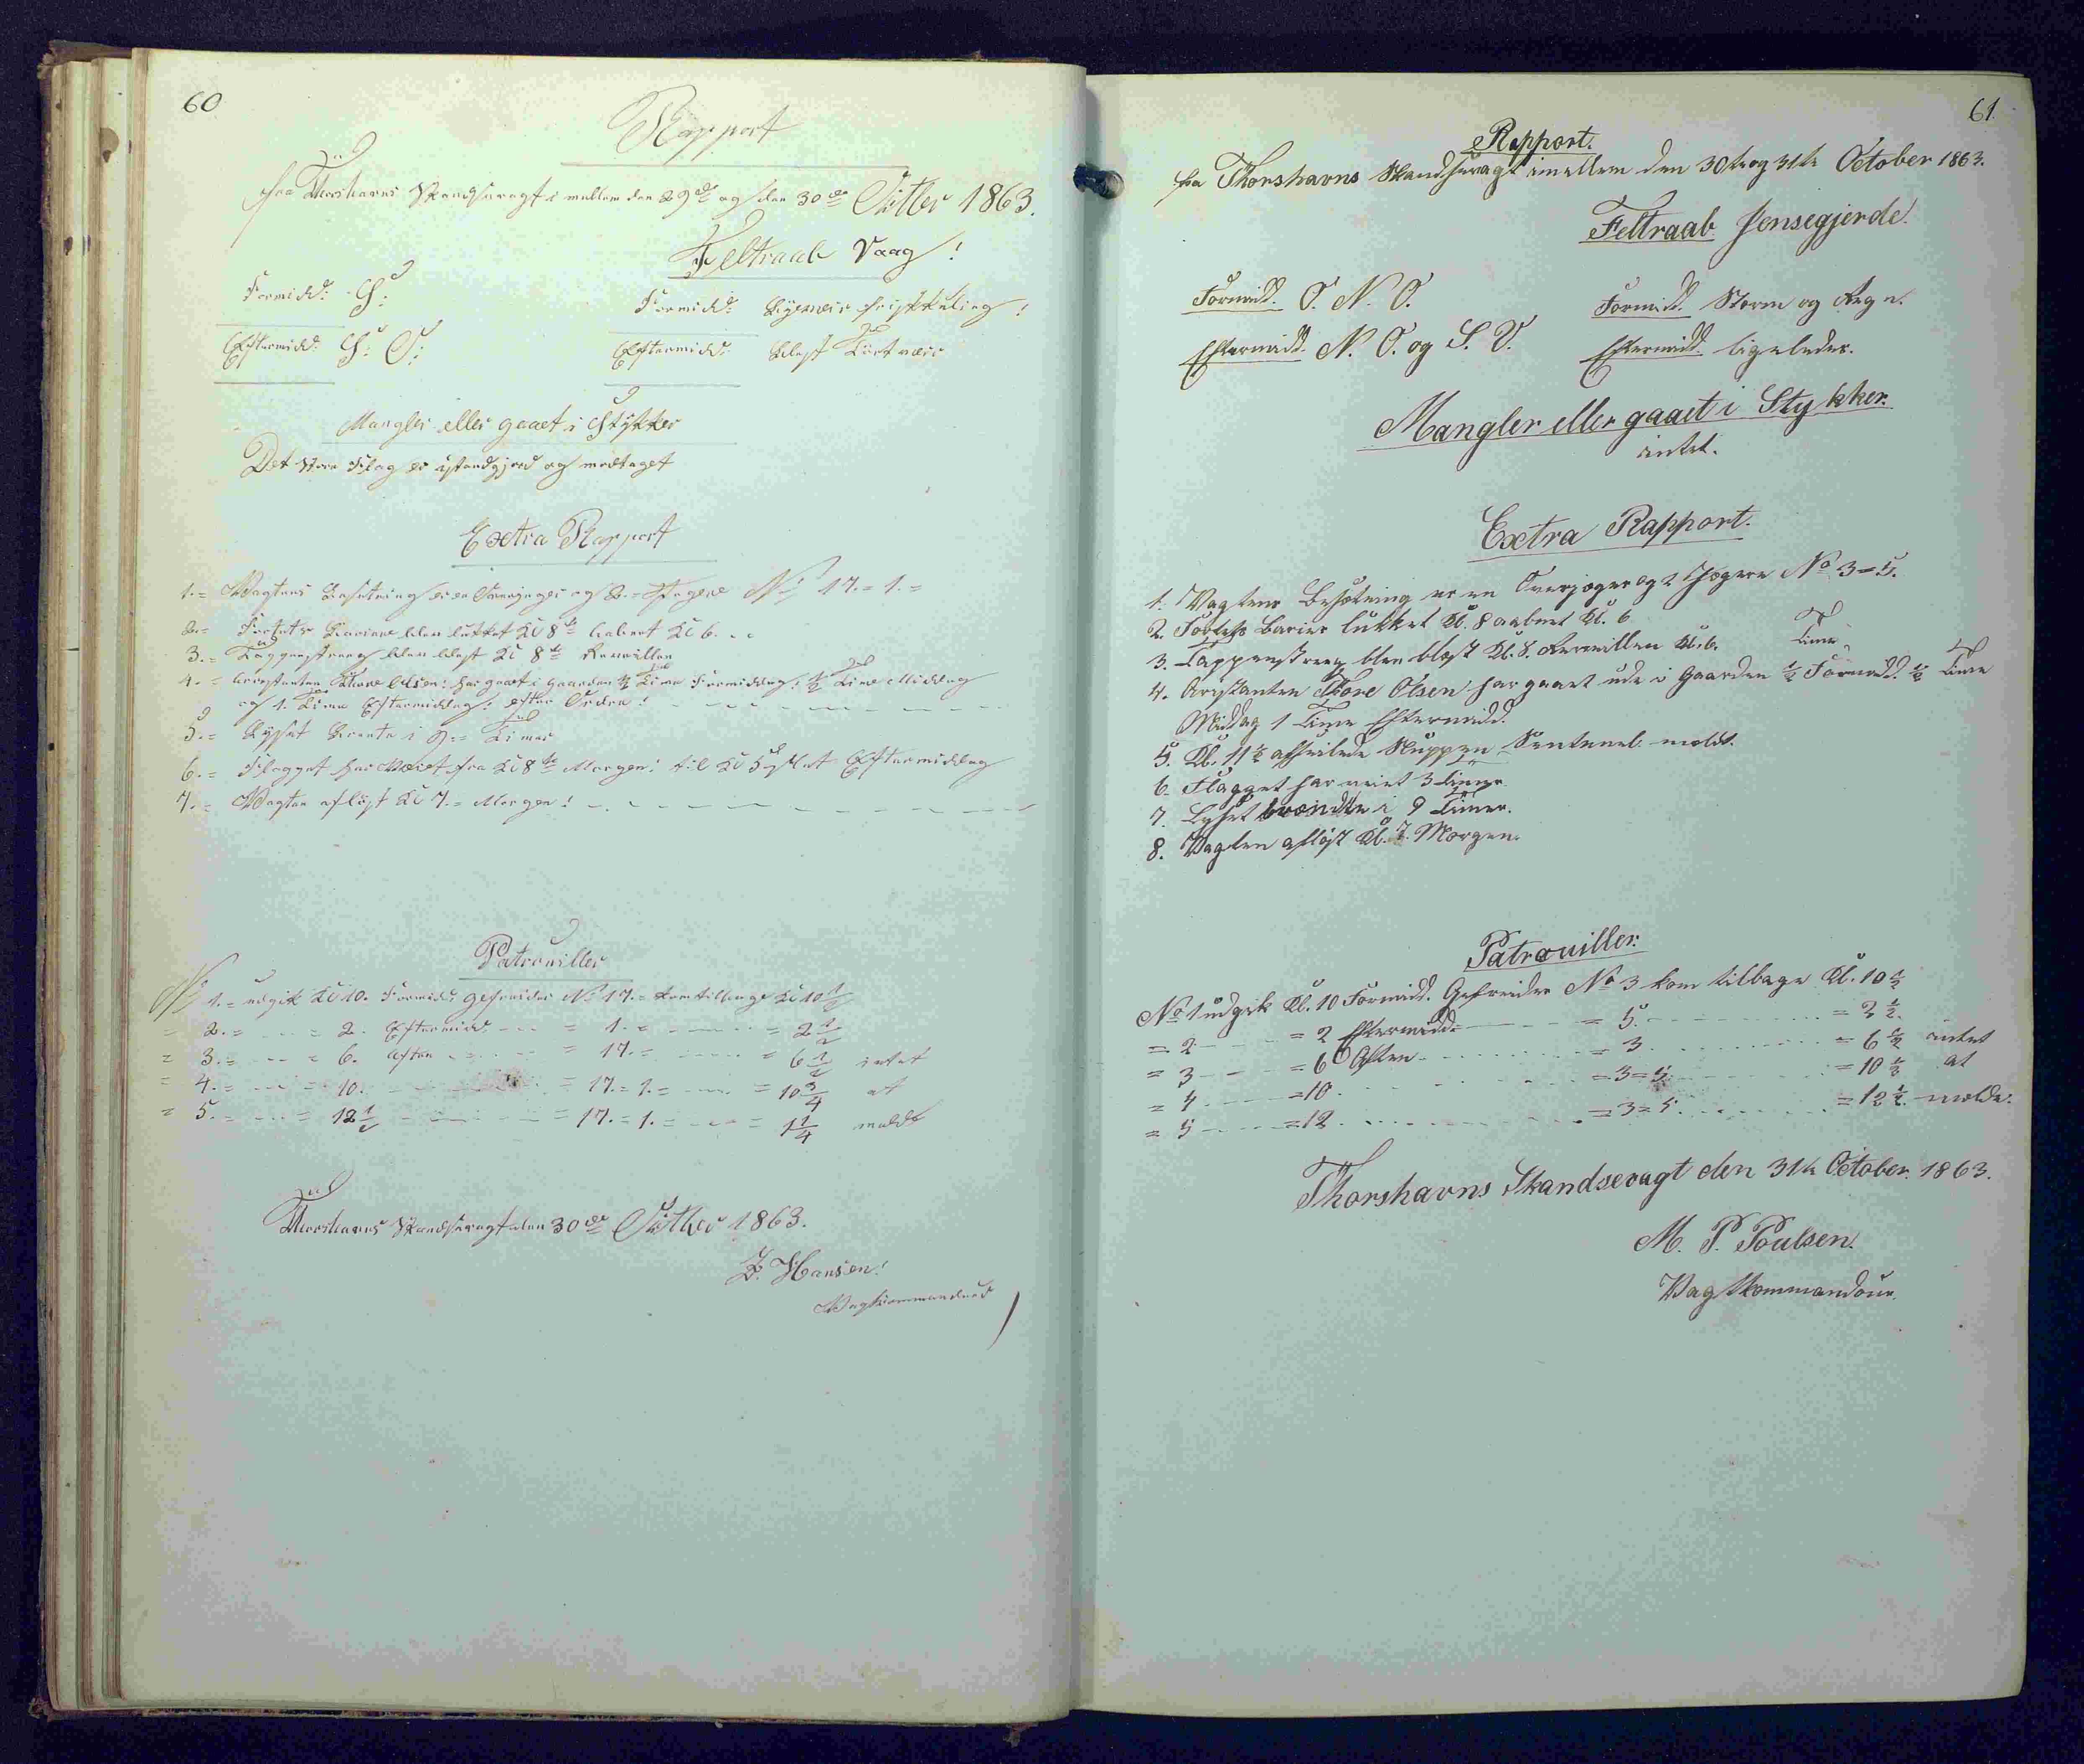 60
Rapport
fra Thorshavns Skandsevagt imellem den 29de og den 30de Octbr 1863.
Feltraab Vaag!
Formidd: S:
Formidd: Byeveir frisk Kuling!
Eftermidd: S: O:
Eftermidd: blæst Tørt veir
Mangler eller gaaet i Stykker
Det store Flag er istandgjord og modtaget
Extra Rapport
1.= Vagtens Besætning er en Overjæger og 2.= Jægere No 17.=1.=
2.= Fortets Bariere blev lukket Kl 8te aabnet Kl 6.
3.= Tappenstreeg blev blæst Kl 8te Reveillen
4.= Arrestanten Thore Olsen: har gaaet i Gaarden ½ Time Formiddag: ½ Time Middag
og 1. Time Eftermiddag: efter Ordre!
5.= Lyset brænte i 9.= Timer
6.= Flagget har været fra Kl 8te Morgen: til Kl 5 Eftermiddag
7.= Vagten afløst Kl 7.= Morgen!
Patrouiller
No 1.= udgik Kl 10. Formidd: Gefreider No 17.= kom tilbage Kl 10½
= 2.= = 2. Eftermidd = 1.= = 2½
= 3.= = 6. Aften = 17.= = 6½ intet
= 4.= = 10. = 17.=1.= = 10¾ at
= 5.= = 12½ = 17.=1.= = 1¼ melde
Thorshavns Skandsevagt den 30de Octbr 1863.
Z. Hansen!
Vagtkommandeur
61.
Rapport.
fra Thorshavns Skandsevagt imellem den 30te og 31te October 1863.
Feltraab Jensegjerde.
Formidd. O. N. O.
Formidd. Storm og Regn.
Eftermidd. N. O. og S. V.
Eftermidd. ligeledes.
Mangler eller gaaet i Stykker.
intet.
Extra Rapport.
1. Vagtens Besætning er en Overjæger og 2 Jægere No 3=5.
2. Fortets Barier lukket Kl. 8 aabnet Kl. 6
3. Tappenstreeg blev blæst Kl. 8. Reveillen Kl. 6.
4. Arrestanten Thore Olsen har gaaet ude i Gaarden ½ Time Formidd. ½ Time
Middag 1 Time Eftermidd.
5. Kl. 11½ afseilede Sluppen Sentenel meldt.
6. Flagget har veiet 3 Timer
7. Lyset brændte i 9 Timer.
8. Vagten afløst Kl. 7. Morgen.
Patrouiller.
No 1 udgik Kl. 10 Formidd. Gefreider No 3 kom tilbage Kl. 10½
= 2 = 2 Eftermidd. = 5. = 2½.
= 3 = 6 Aften = 3 = 6½ intet
= 4 = 10 = 3=5 = 10½ at
= 5 = 12 = 3=5. = 12½. melde.
Thorshavns Skandsevagt den 31te October. 1863.
M. P. Poulsen.
Vagtkommandeur.